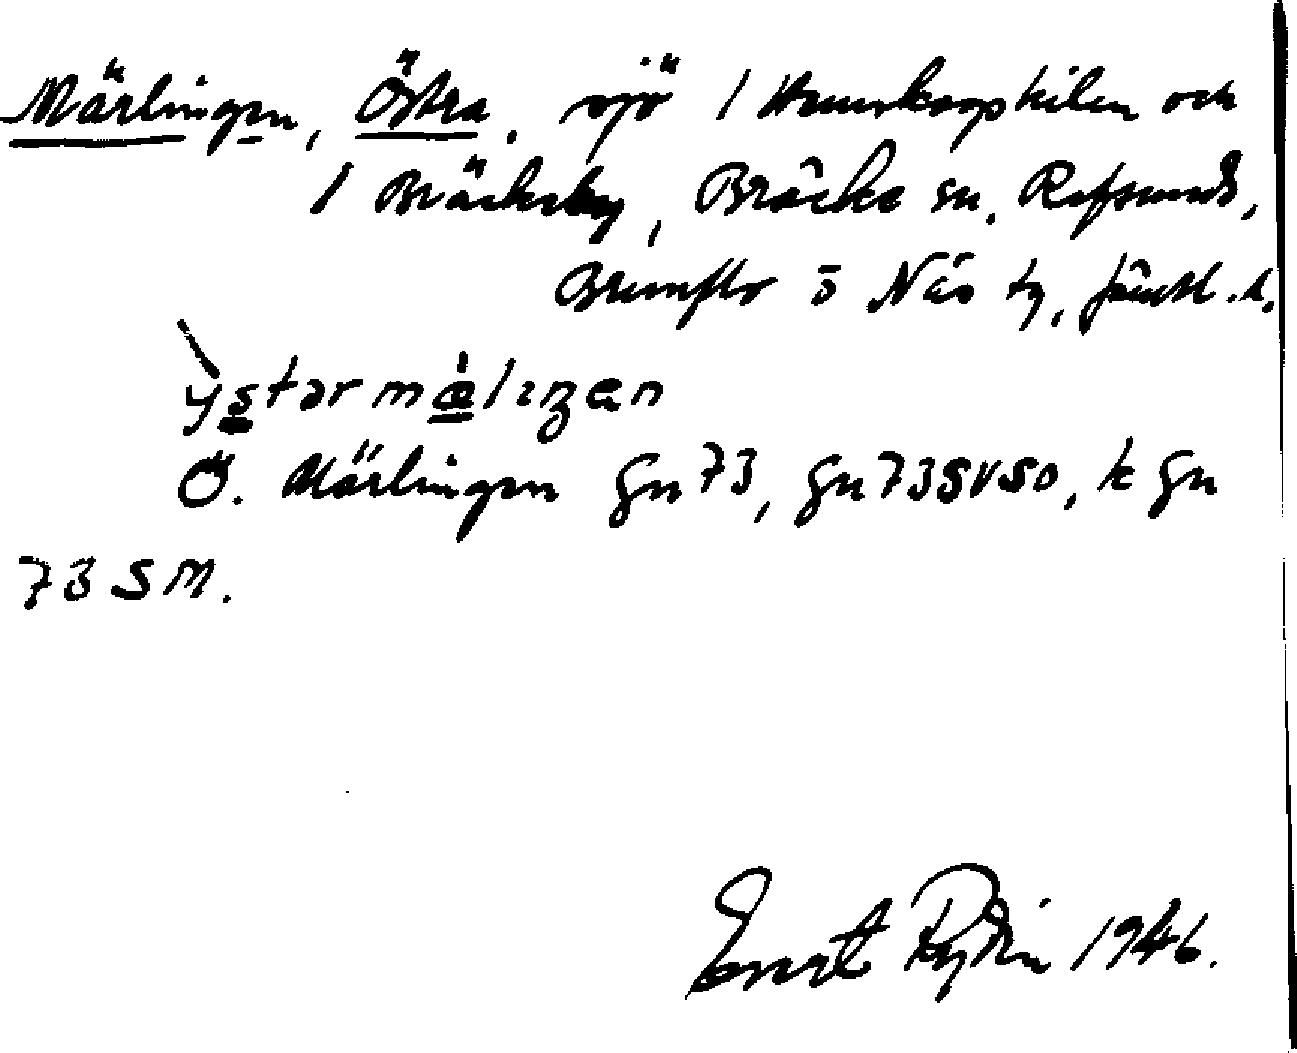 Märlingen, Östra, sjö / Hunskapskilen och
/ Bräckeby, Bräcke sn. Refsunds,
Brunflo o Näs tg, Jämtl. l.
ystərmælıŋen
Ö. Märlingen Gn 73, Gn 73SVSO, k Gn
73 SM.
Ernst Rydin 1946.